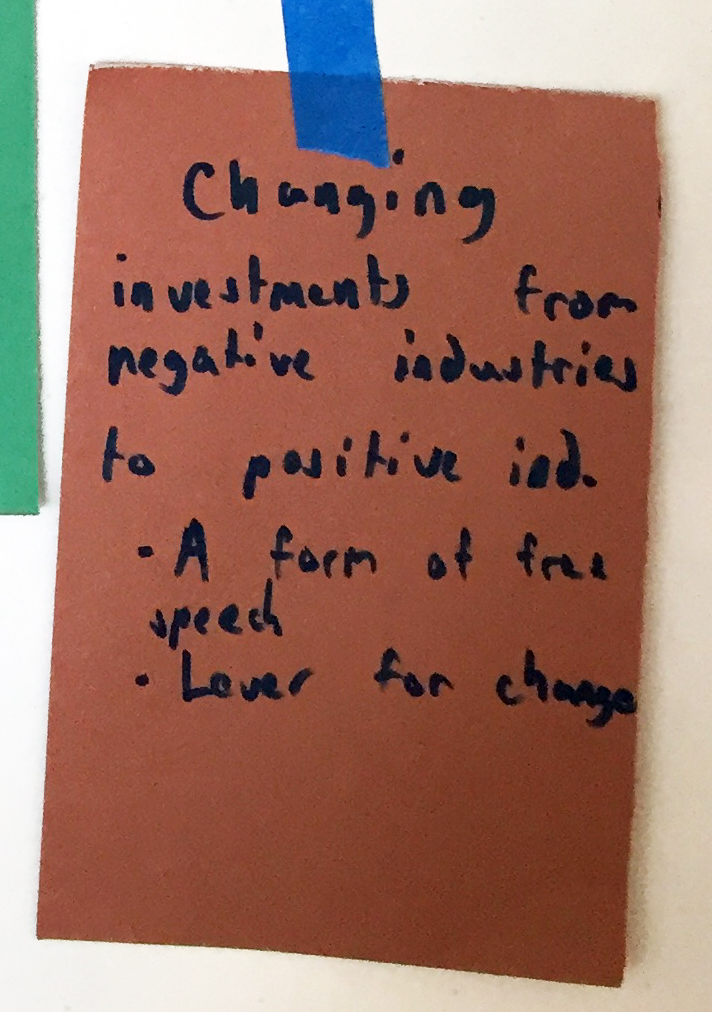 Changing
investments from
negative industries
to positive ind.
• A form of free
speech
• Lever for change